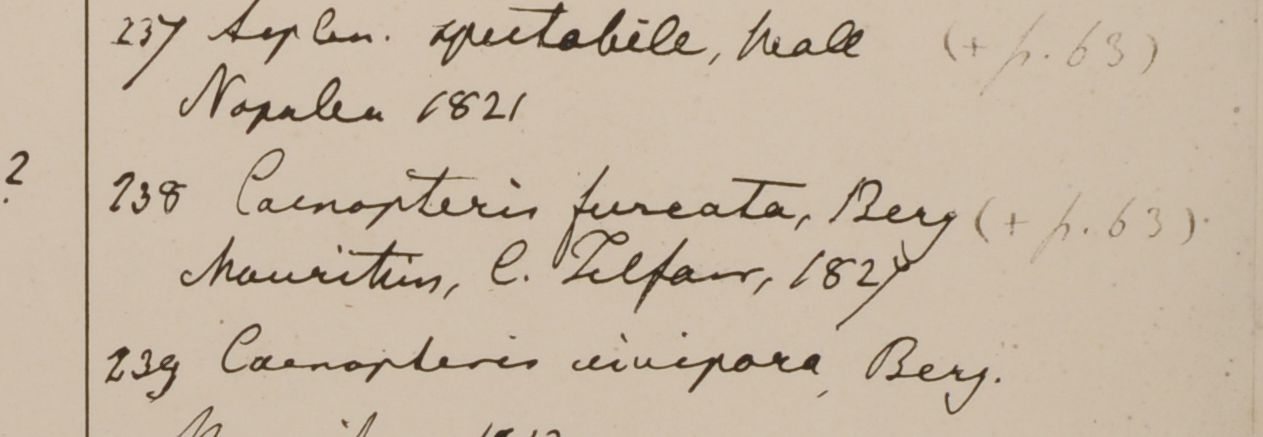 237 Asplen. spectabile, Wall (+ p. 63)
Napalea 1821
? 238 Caenopteris furcata, Berg (+ p. 63)
Mauritius, C. Telfair, 1827
239 Caenopteris vivipara, Berg.